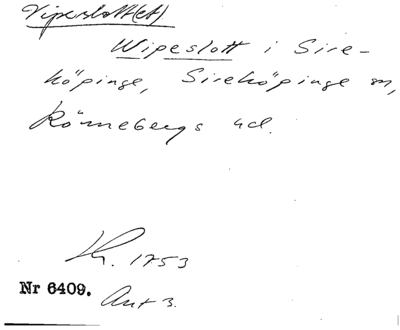 Vipeslott(et)
Wipeslott i Sire-
köpinge, Sireköpinge sn,
Rönnebergs hd.
Kr. 1753
Nr 6409. Ant 3.